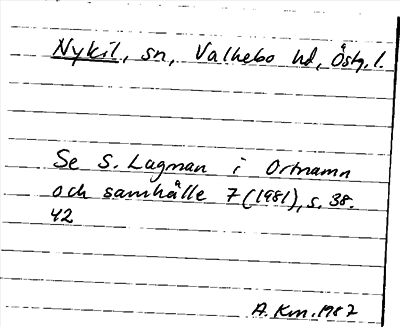 Nykil, sn, Valkebo hd, Östg. l.
Se S. Lagman i Ortnamn
och samhälle 7 (1981), s. 38.
42
A. Km. 1987